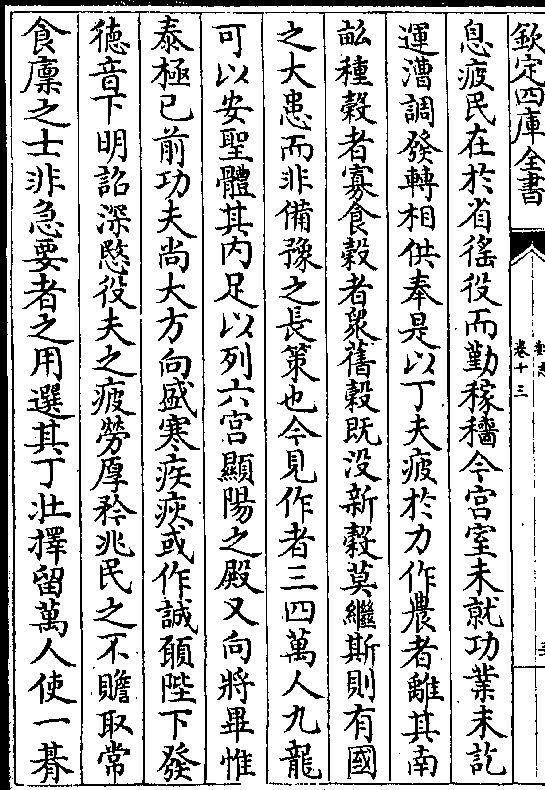 欽定四庫全書
卷十三
息疲民在於省徭役而勤稼穡今宮室未就功業未訖
運漕調發轉相供奉是以丁夫疲於力作農者離其南
畝種穀者寡食穀者衆舊穀既没新穀莫繼斯則有國
之大患而非備豫之長策也今見作者三四萬人九龍
可以安聖體其内足以列六宮顯陽之殿又向將畢惟
泰極已前功夫尚大方向盛寒疾疢或作誠願陛下發
徳音下明詔深愍役夫之疲勞厚矜兆民之不贍取常
食廩之士非急要者之用選其丁壯擇留萬人使一朞